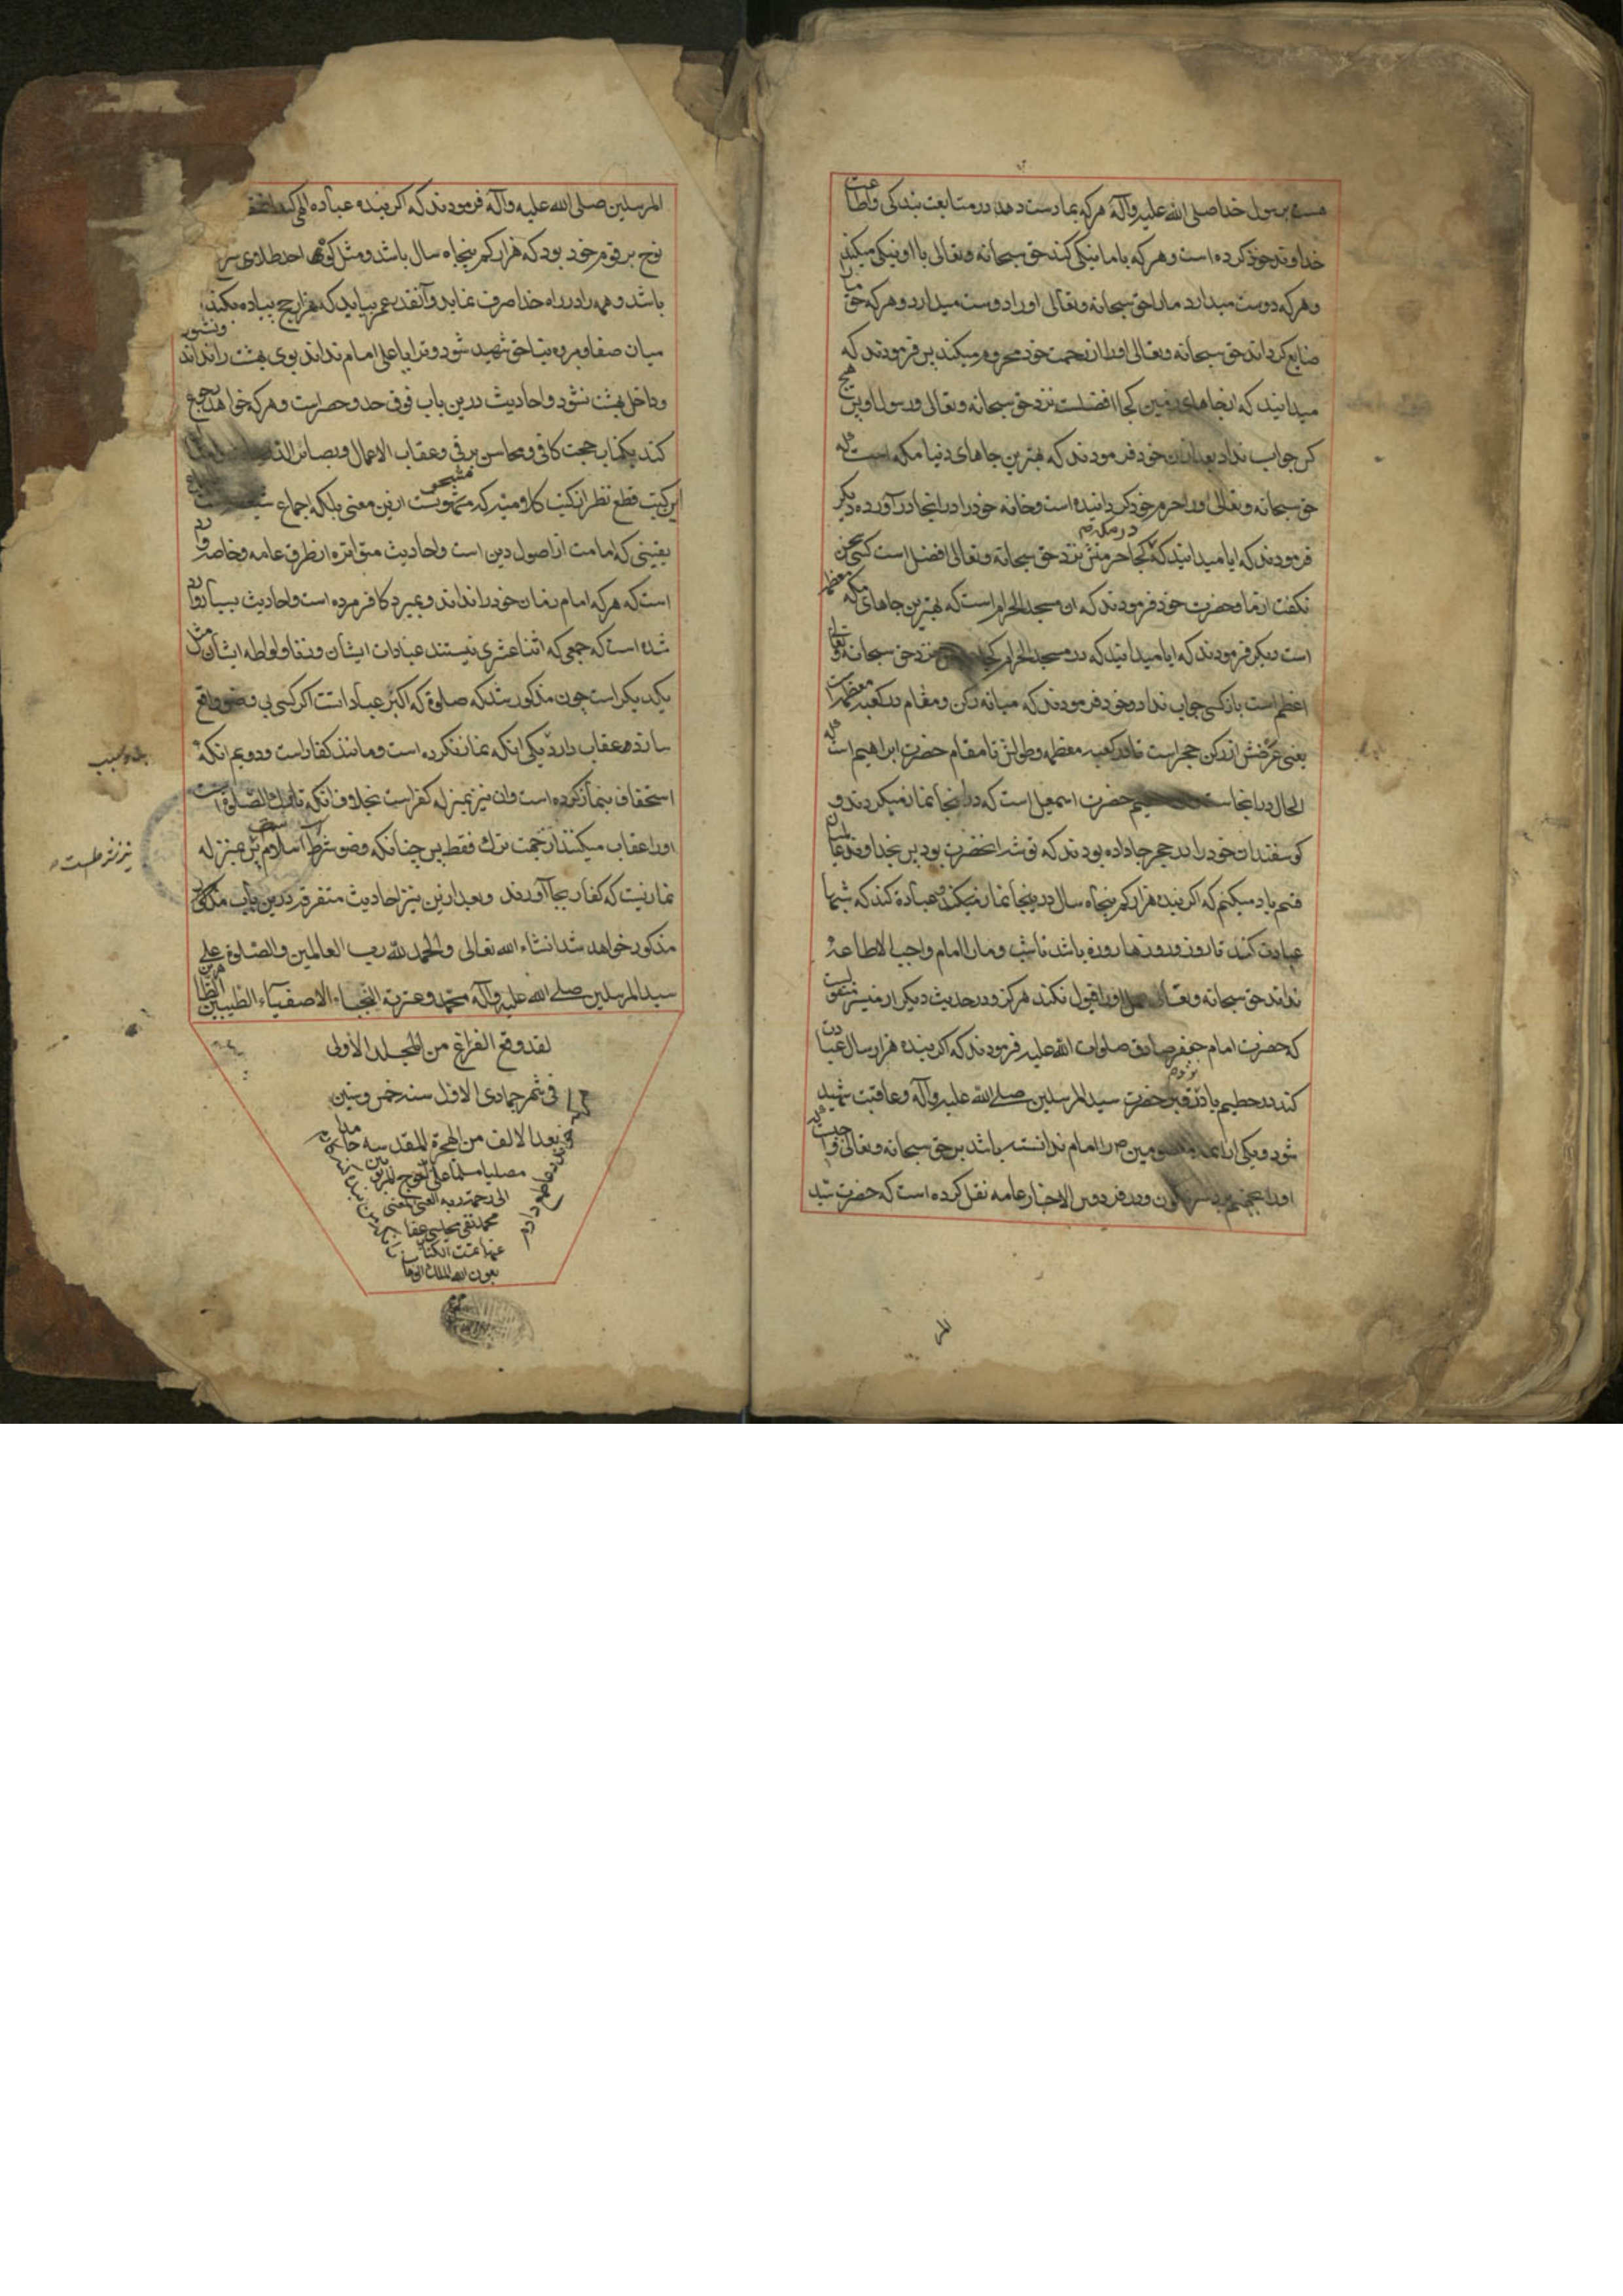 رسول خدا صلی الله علیه وآله هرکه بما دست دهد در متابعت بندکی واطاعت
خداوند خود کرده است وهرکه با ما نیکی کند حق سبحانه وتعالی با او نیکی میکند
وهرکه دوست میدارد ما را حق سبحانه وتعالی او را دوست میدارد وهرکه حق ما را
ضایع کرداند حق سبحانه وتعالی او را از رحمت خود محروم میکند پس فرمودند که
میدانید که از جاهای زمین کجا افضلست نزد حق سبحانه وتعالی ورسول او پس هیچ
کس جواب نداد بعد از ان خود فرمودند که بهترین جاهای دنیا مکه است که
حق سبحانه وتعالی او را حرم خود کردانیده است وخانه خود را در اینجا در آورده دیکر
فرمودند که ایا میدانید که کجا در مکه حرمتش نزد حق سبحانه وتعالی افضل است کسی سخن
نکفت از ما وحضرت خود فرمودند که ان مسجد الحرام است که بهترین جاهای مکه معظمه
است دیکر فرمودند که ایا میدانید که در مسجد الحرام کجا نزد حق سبحانه وتعالی
اعظم است باز کسی جواب نداد وخود فرمودند که میانه رکن ومقام در کعبه معظمه است
یعنی عرضش از رکن حجر است تا در کعبه معظمه وطولش تا مقام حضرت ابراهیم است که
الحال در انجاست حطیم حضرت اسمعیل است که در اینجا نماز میکردند و
کوسفندان خود را در حجر جا داده بودند که توشه انحضرت بود پس بخداوند عالمیان
قسم یاد میکنم که اکر بنده هزار کم پنجاه سال در اینجا نماز نیکند وعبادة کند که شبها
عبادت کند تا روز وروزها روزه باشد تا شب وما را امام واجب الاطاعه
نداند حق سبحانه وتعالی او را قبول نکند هرکز ودر حدیث دیکر از میسر منقولست
که حضرت امام جعفر صادق صلوات الله علیه فرمودند که اکر بنده هزار سال عبادت
کند در حطیم یا در نزد قبر حضرت سید المرسلین صلی الله علیه وآله وعاقبت شهید
شود ویکی از ائمه معصومین را امام ندانسته باشد بر حق سبحانه وتعالی واجبست که
او را بجهنم برد سرنکون ودر فردوس الاخبار عامه نقل کرده است که حضرت سید
المر
المرسلین صلی الله علیه وآله فرمودند که اکر بنده عبادة الهی کند
نوح بر قوم خود بود که هزار کم پنجاه سال باشد ومثل کوه احد طلا وی را
باشد وهمه را در راه خدا صرف نماید وآنقدر عمر بیابد که هزار حج پیاده بکند
میان صفا ومروه بناحق شهید شود وترا یا علی امام نداند بوی بهشت را نداند ونشنود
وداخل بهشت نشود واحادیث درین باب فوق حد وحصر است وهرکه خواهد رجوع
کند بکتاب حجت کافی ومحاسن برقی وعقاب الاعمال وبصائر
این کتب قطع نظر از کتب کلامیه که مشحونست ازین معنی بلکه اجماع
یقینی که امامت از اصول دین است واحادیث متواتره از طرق عامه وخاصه وارد
است که هرکه امام زمان خود را نداند وبمیرد کافر مرده است واحادیث بسیار وارد
شده است که جمعی که اثنا عشری نیستند عبادات ایشان وزنا ولواطه ایشان مثل
یکدیکر است چون مذکور شد که صلوة که اکبر عبادا تست اکر کسی بی وضو واقع
سازد دو عقاب دارد یکی انکه نماز نکرده است ومانند کفار است ودویم انکه
استخفاف بنماز کرده است وان نیز بمنزله کفر است بخلاف انکه تارک الصلوة است
او را عقاب میکنند از جهت ترک فقط پس چنانکه وضو شرط است اسلام بمنزله
نماز نیست که کفار بجا آورند وبعد ازین نیز احادیث متفرقه درین باب مذکور
مذکور خواهد شد انشاء الله تعالی والحمد لله رب العالمین والصلوة علی
سید المرسلین صلی الله علیه وآله محمد وعترته النجباء الاصفیاء الطیبین الطاهرین
لقد وقع الفراغ من المجلد الاولی
فی شهر جمادی الاول سنه خمس وستین
بعد الالف من الهجرة المقدسه حامدا
مصلیا مسلما علی احوج المربوبین
الی رحمة ربه الغنی المغنی
محمد تقی مجلسی عفا
عنهما تمت الکتاب
بعون الله الملک الوهاب